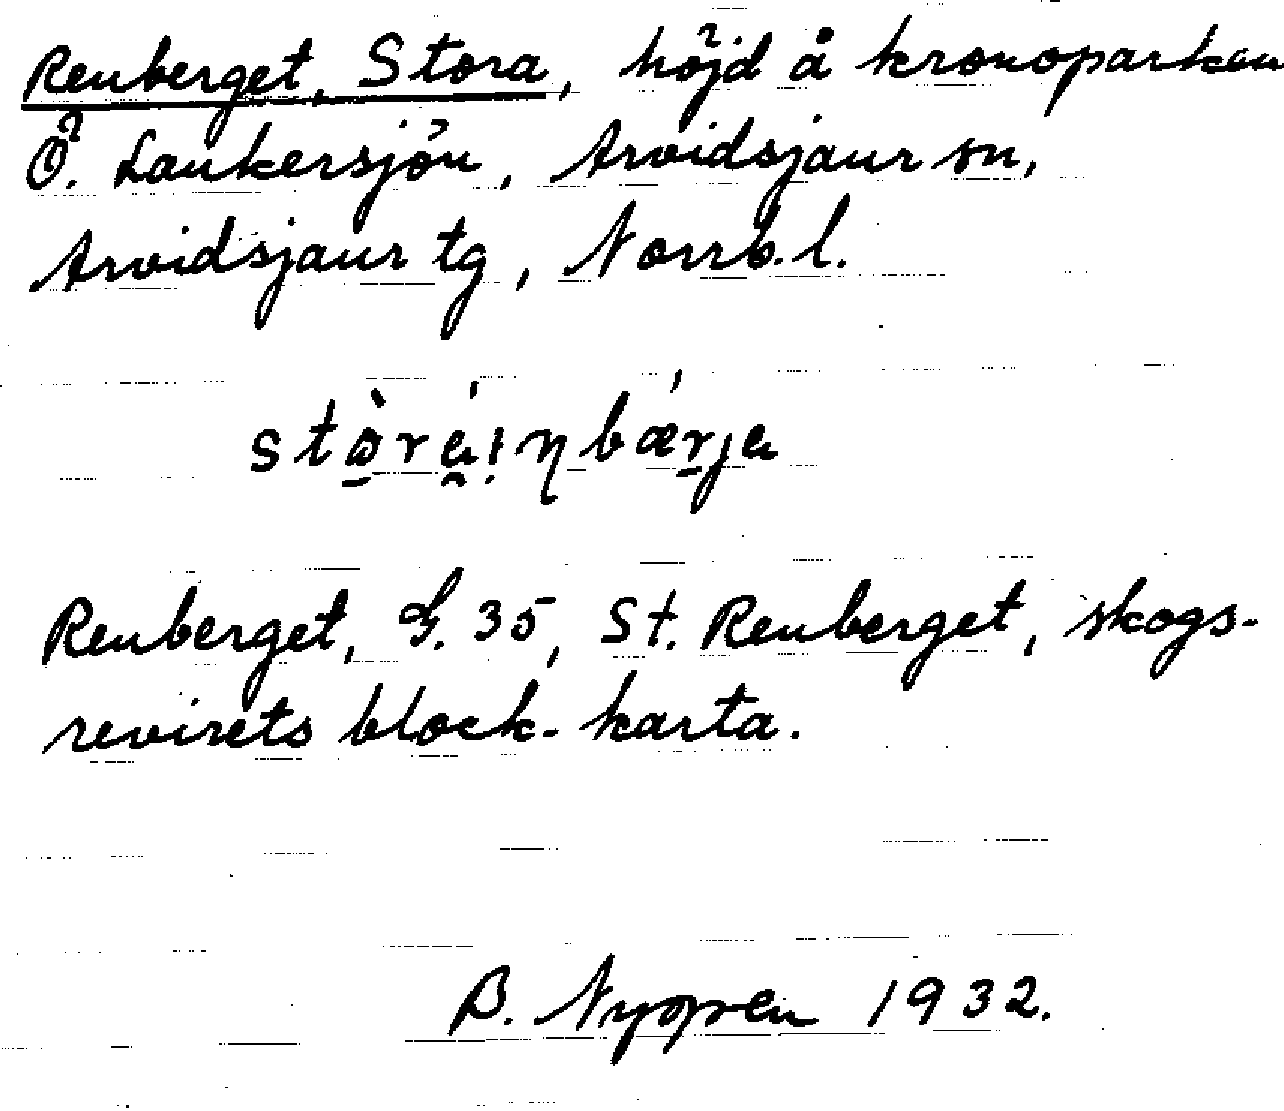 Renberget, Stora, höjd å kronoparken
Ö. Laukersjön, Arvidsjaur sn,
Arvidsjaur tg, Norrb. l.
Renberget, G. 35, St. Renberget, skogs-
revirets block-karta.
B. 1932.